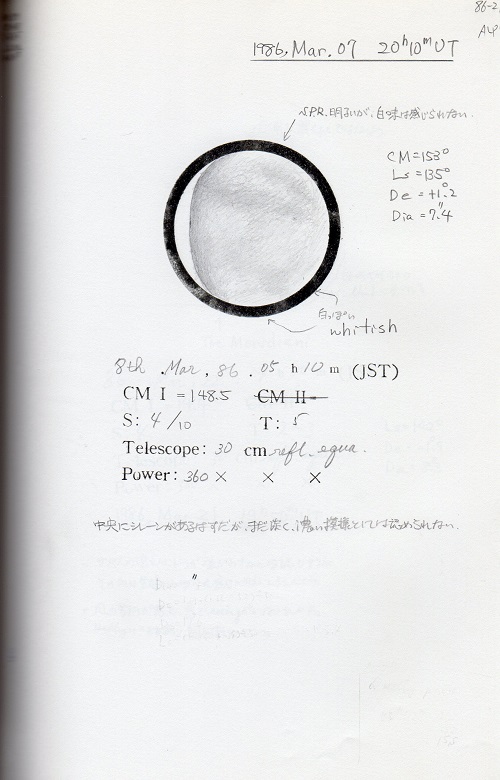 86-2
1986, Mar. 07 20ʰ10ᵐ UT
S.P.R. 明るいが、白味は感じられない.
CM=153°
Ls=135°
De=+1.°2
Dia=7."4
白っぽい
whitish
8th. Mar, 86. 05 h 10 m (JST)
CM I =148.5 CM II
S: 4/10 T: 5
Telescope: 30 cm refl. equa.
Power: 360 × × ×
中央にシレーンがあるはずだが、まだ淡く、濃い模様としては認められない.